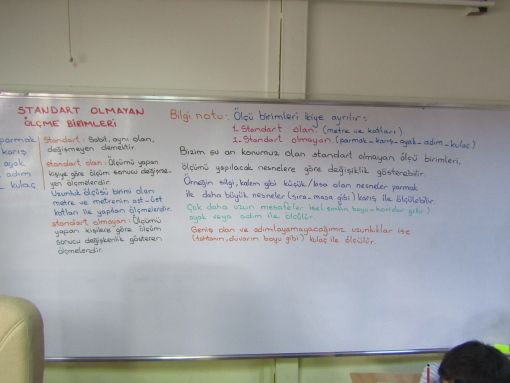 STANDART OLMAYAN
ÖLÇME BİRİMLERİ
parmak
karış
ayak
adım
kulaç
Standart: Sabit, aynı olan,
değişmeyen demektir.
standart olan: Ölçümü yapan
kişiye göre ölçüm sonucu değişme-
yen ölçmelerdir.
Uzunluk ölçüsü birimi olan
metre ve metrenin ast-üst
katları ile yapılan ölçmelerdir.
standart olmayan: Ölçümü
yapan kişilere göre ölçüm
sonucu değişkenlik gösteren
ölçmelerdir.
Bilgi notu: Ölçü birimleri ikiye ayrılır:
1. Standart olan (metre ve katları)
2. Standart olmayan (parmak-karış-ayak-adım-kulaç)
Bizim şu an konumuz olan standart olmayan ölçü birimleri,
ölçümü yapılacak nesnelere göre değişiklik gösterebilir.
Örneğin silgi, kalem gibi küçük/kısa olan nesneler parmak
ile daha büyük nesneler (sıra-masa gibi) karış ile ölçülebilir.
Çok daha uzun mesafeler ise (sınıfın boyu-koridor gibi)
ayak veya adım ile ölçülür.
Geniş olan ve adımlayamayacağımız uzunluklar ise
(tahtanın, duvarın boyu gibi) kulaç ile ölçülür.